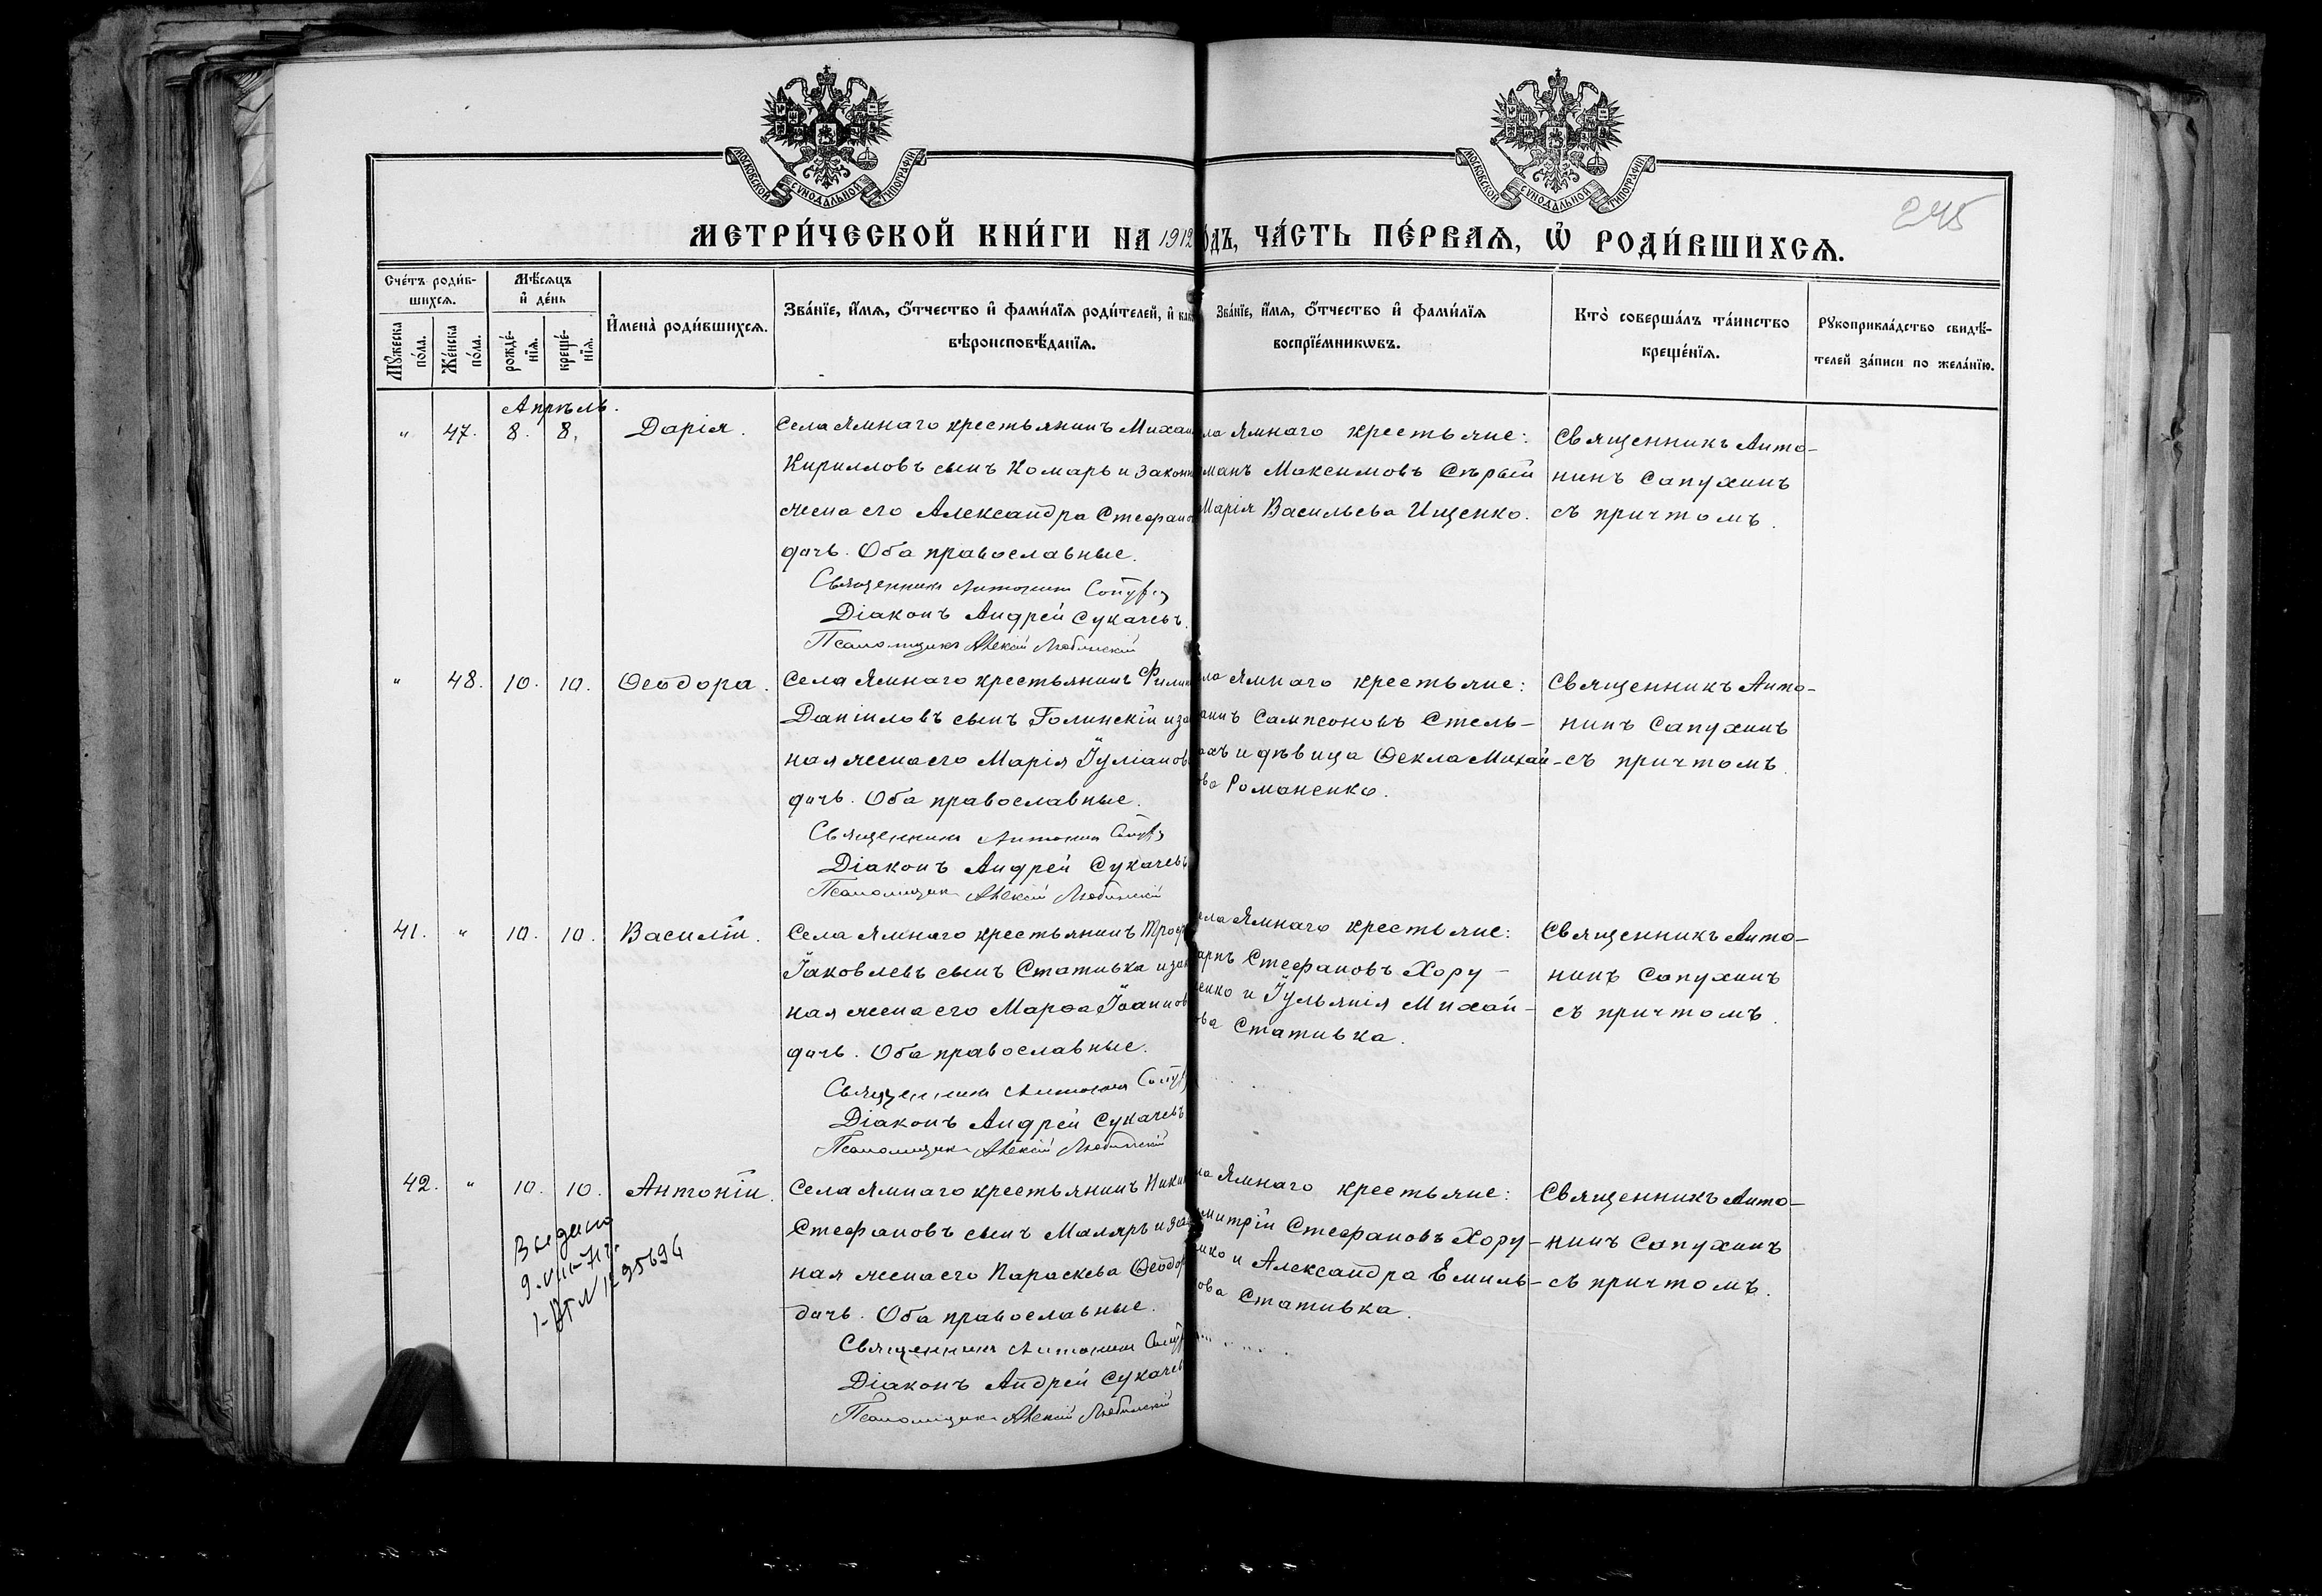 МОСКОВСКОЙ СУНОДАЛЬНОЙ ТИПОГРАФІИ
МОСКОВСКОЙ СУНОДАЛЬНОЙ ТИПОГРАФІИ
245
МЕТРИ́ЧЕСКОЙ КНИ́ГИ НА 1912
ОДЪ, ЧА́СТЬ ПЕ́РВАѦ, Ѡ РОДИ́ВШИХСѦ.
Сче́тъ роди́в-
шихсѧ.
Мѣ́сѧцъ
и҆ де́нь
Мꙋ́жеска
по́ла.
Же́нска
по́ла.
рожде́-
нїѧ.
креще́-
нїѧ.
И҆мена̀ роди́вшихсѧ.
Зва́нїе, и҆́мѧ, ѻ҆́тчество и҆ фами́лїѧ роди́телей, и҆
вѣроисповѣ́данїѧ.
Зва́нїе, и҆́мѧ, ѻ҆́тчество и҆ фами́лїѧ
воспрїе́мникѡвъ.
Кто̀ соверша́лъ та́инство
креще́нїѧ.
Рꙋкоприкла́дство свидѣ́-
телей за́писи по жела́нїю.
Апрѣль.
" 47. 8. 8. Дарія.
Села Ямнаго крестьянинъ Михаи
Кирилловъ сынъ Комарь и законн
жена его Александра Стефанов
дочь. Оба православные.
Священникъ Антонин
Діаконъ Андрей Сукачевъ.
Псаломщикъ Алексій Любинскій
ла Ямнаго крестьяне:
манъ Максимовъ Сѣрый
Марія Васильева Ищенко.
Священникъ Анто-
нинъ Сапухинъ
съ причтомъ.
" 48. 10. 10. Ѳеодора.
Села Ямнаго крестьянинъ Филип
Даніиловъ сынъ Голинскій и за
ная жена его Марія Іуліанов
дочь. Оба православные.
Священникъ Антонин
Діаконъ Андрей Сукачевъ
Псаломщикъ Алексій Любинскій
ла Ямнаго крестьяне:
аннъ Сампсоновъ Стель-
ахъ и дѣвица Ѳекла Михай-
ова Романенко.
Священникъ Анто-
нинъ Сапухинъ
съ причтомъ.
41. " 10. 10. Василій.
Села Ямнаго крестьянинъ Троф
Іаковлевъ сынъ Стативка и зак
ная жена его Марѳа Іоаннов
дочь. Оба православные.
Священникъ Антонин
Діаконъ Андрей Сукачевъ
Псаломщикъ Алексій Любинскій
ела Ямнаго крестьяне:
арпъ Стефановъ Хору-
енко и Іульянія Михай-
ова Стативка.
Священникъ Анто-
нинъ Сапухинъ
съ причтомъ.
42. " 10. 10. Антоній.
Села Ямнаго крестьянинъ Ники
Стефановъ сынъ Маляръ и за
ная жена его Параскева Ѳеодор
дочь. Оба православные.
Священникъ Антонин
Діаконъ Андрей Сукачев
Псаломщикъ Алексій Любинскій
ла Ямнаго крестьяне:
митрій Стефановъ Хору-
нко и Александра Емиль-
ова Стативка.
Священникъ Анто-
нинъ Сапухинъ
съ причтомъ.